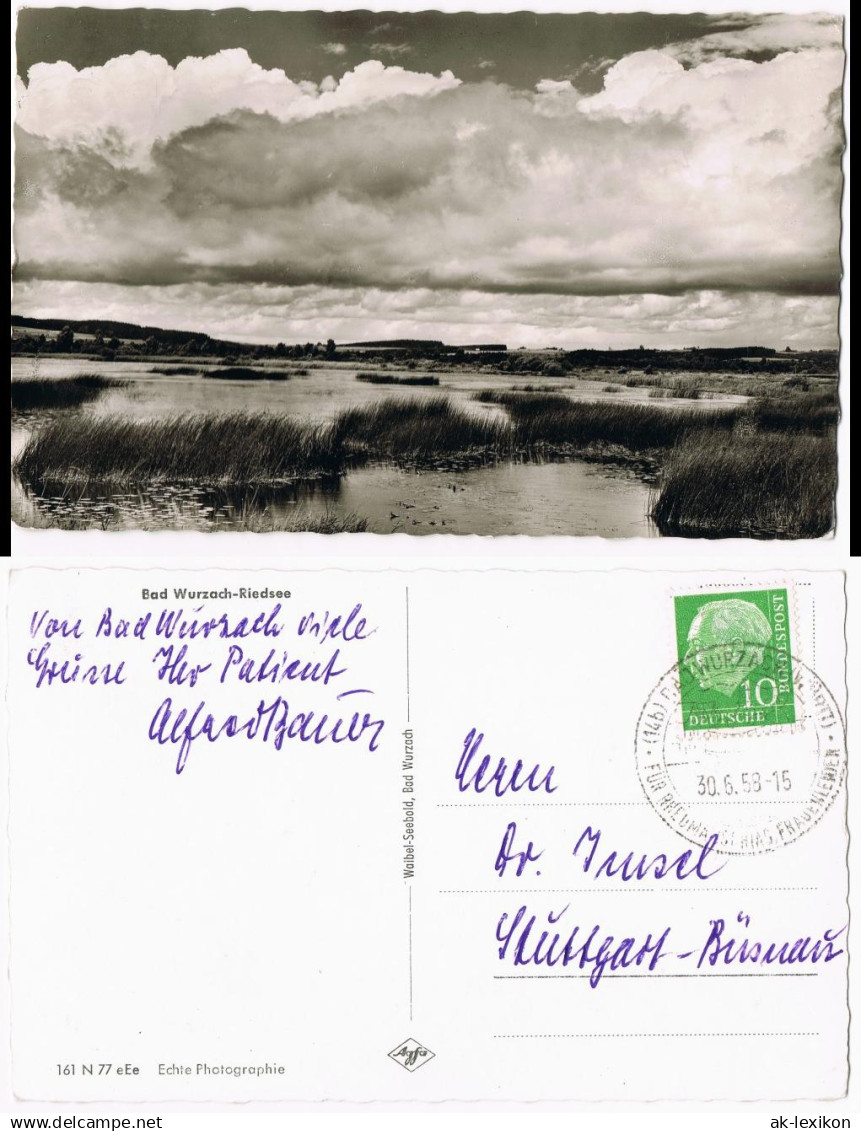 Bad Wurzach-Riedsee
Von Bad Wurzach viele
Grüsse Ihr Patient
Alfred Bauer
Waibel-Seebold, Bad Wurzach
161 N 77 eEe Echte Photographie
Agfa
10
DEUTSCHE
BUNDESPOST
(14b) BAD WURZACH
30.6.58-15
FÜR RHEUMA, ISCHIAS, FRAUENLEIDEN
Herrn
Dr. Imsel
Stuttgart-Büsnau
ak-lexikon